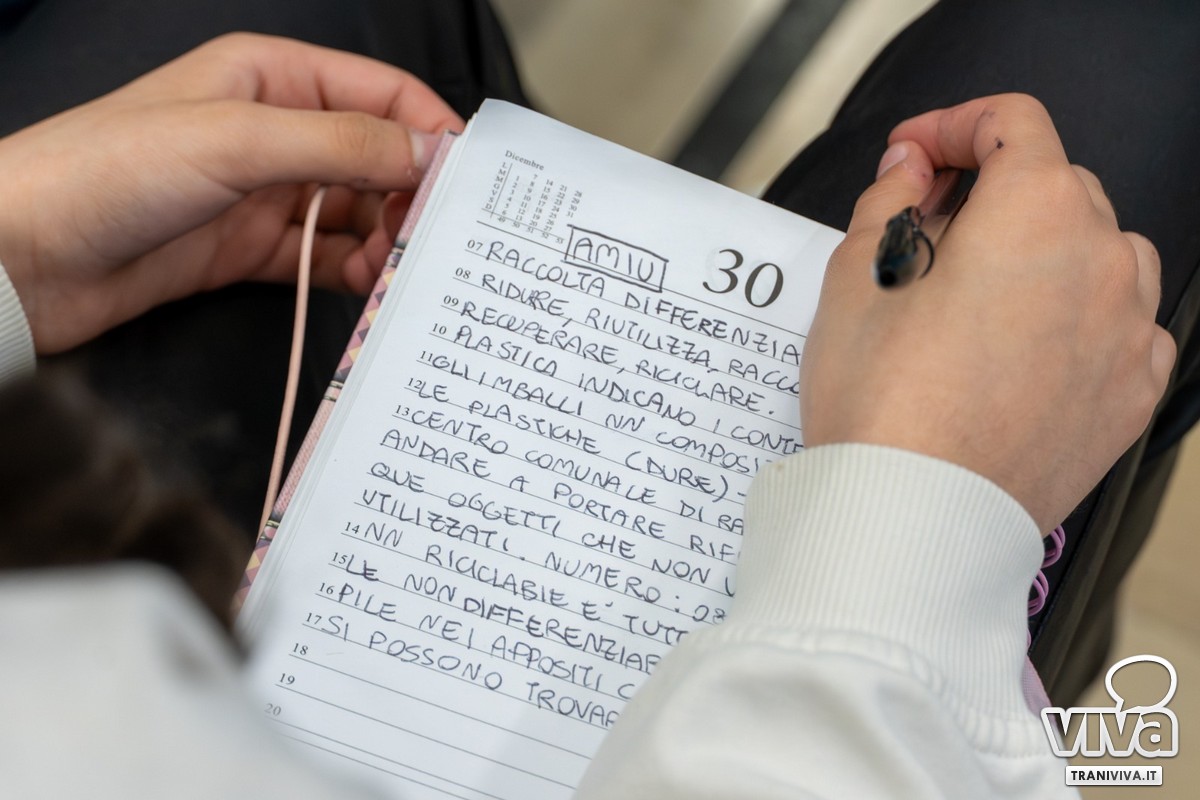 Dicembre
AMIU
30
07 RACCOLTA DIFFERENZIA
08 RIDURE, RIUTILIZZA, RACCO
09 RECUPERARE, RICICLARE.
10 PLASTICA INDICANO I CONTE
11 GLI IMBALLI NN COMPOSI
12 LE PLASTICHE (DURE) -
13 CENTRO COMUNALE DI RA
ANDARE A PORTARE RIF
QUE OGGETTI CHE NON
UTILIZZATI. NUMERO: 08
14 NN RICICLABIE E' TUTT
15 LE NON DIFFERENZIAB
16 PILE NEI APPOSITI C
17 SI POSSONO TROVAR
18
19
20
VIVA
TRANIVIVA.IT